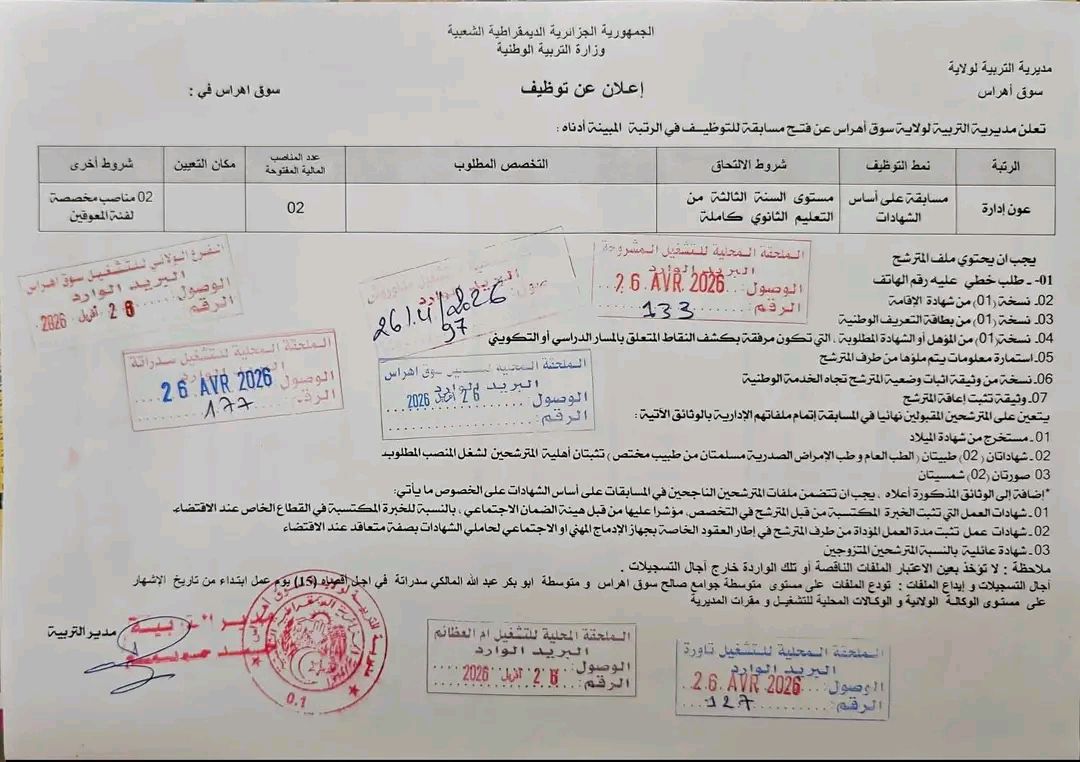 الجمهورية الجزائرية الديمقراطية الشعبية
وزارة التربية الوطنية
مديرية التربية لولاية
سوق أهراس
إعلان عن توظيف
سوق اهراس في :
تعلن مديرية التربية لولاية سوق أهراس عن فتح مسابقة للتوظيف في الرتبة المبينة أدناه :
الرتبة نمط التوظيف شروط الالتحاق التخصص المطلوب عدد المناصب المالية المفتوحة مكان التعيين شروط أخرى
عون إدارة مسابقة على أساس الشهادات مستوى السنة الثالثة من التعليم الثانوي كاملة 02 02 مناصب مخصصة لفئة المعوقين
يجب ان يحتوي ملف المترشح
01- ـ طلب خطي عليه رقم الهاتف
02ـ نسخة (01) من شهادة الإقامة
03ـ نسخة (01) من بطاقة التعريف الوطنية
04ـ نسخة (01) من المؤهل أو الشهادة المطلوبة ، التي تكون مرفقة بكشف النقاط المتعلق بالمسار الدراسي أو التكويني
05ـ استمارة معلومات يتم ملؤها من طرف المترشح
06ـ نسخة من وثيقة اثبات وضعية المترشح تجاه الخدمة الوطنية
07ـ وثيقة تثبت إعاقة المترشح
يتعين على المترشحين المقبولين نهائيا في المسابقة إتمام ملفاتهم الإدارية بالوثائق الآتية :
01 ـ مستخرج من شهادة الميلاد
02 ـ شهاداتان (02) طبيتان (الطب العام و طب الإمراض الصدرية مسلمتان من طبيب مختص) تثبتان أهلية المترشحين لشغل المنصب المطلوب
03 صورتان (02) شمسيتان
*إضافة إلى الوثائق المذكورة أعلاه ، يجب ان تتضمن ملفات المترشحين الناجحين في المسابقات على أساس الشهادات على الخصوص ما يأتي:
01ـ شهادات العمل التي تثبت الخبرة المكتسبة من قبل المترشح في التخصص، مؤشرا عليها من قبل هيئة الضمان الاجتماعي ، بالنسبة للخبرة المكتسبة في القطاع الخاص عند الاقتضاء.
02ـ شهادات عمل تثبت مدة العمل المؤداة من طرف المترشح في إطار العقود الخاصة بجهاز الإدماج المهني أو الاجتماعي لحاملي الشهادات بصفة متعاقد عند الاقتضاء
03 ـ شهادة عائلية بالنسبة المترشحين المتزوجين
ملاحظة : لا تؤخذ بعين الاعتبار الملفات الناقصة أو تلك الواردة خارج آجال التسجيلات .
آجال التسجيلات و إيداع الملفات : تودع الملفات على مستوى متوسطة جوامع صالح سوق اهراس و متوسطة ابو بكر عبد الله المالكي سدراتة في اجل أقصاه (15) يوم عمل ابتداء من تاريخ الإشهار
على مستوى الوكالة الولائية و الوكالات المحلية للتشغيل و مقرات المديرية
مدير التربية
الفرع الولائي للتشغيل سوق اهراس
البريد الوارد
الوصول: 26 أفريل 2026
الرقم:
26/4/2026
97
الملحقة المحلية للتشغيل المشروحة
البريد الوارد
الوصول: 26 AVR 2026
الرقم: 133
الملحقة المحلية للتشغيل سدراتة
الوصول: 26 AVR 2026
الرقم: 177
الملحقة المحلية للتشغيل سوق اهراس
البريد الوارد
الوصول: 26 أفريل 2026
الرقم:
الملحقة المحلية للتشغيل ام العظائم
البريد الوارد
الوصول: 26 أفريل 2026
الرقم:
الملحقة المحلية للتشغيل تاورة
البريد الوارد
الوصول: 26 AVR 2026
الرقم: 127
0.1